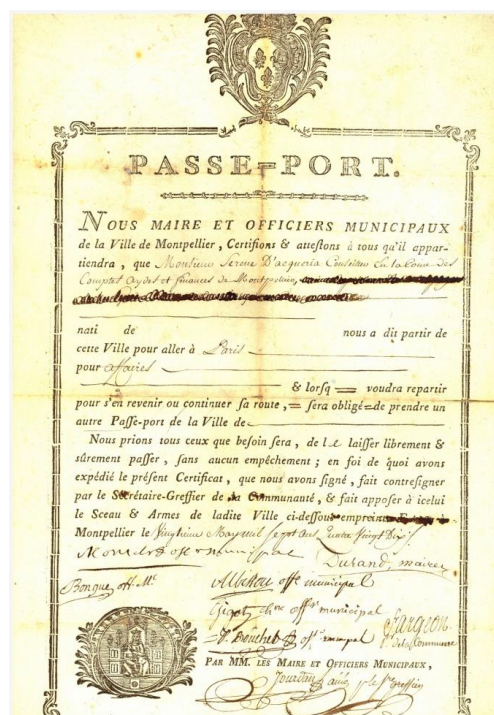 PASSE=PORT.
NOUS MAIRE ET OFFICIERS MUNICIPAUX
de la Ville de Montpellier, Certifions & attestons à tous qu'il appar-
tiendra, que Monsieur Serena D'acqueria Conseiller En la Cour des
Comptes Aydes et finances de Montpellier,
nati de nous a dit partir de
cette Ville pour aller à Paris
pour affaires
& lorsq voudra repartir
pour s'en revenir ou continuer sa route, = sera obligé=de prendre un
autre Passe-port de la Ville de
Nous prions tous ceux que besoin sera, de le laisser librement &
sûrement passer, sans aucun empêchement; en foi de quoi avons
expédié le présent Certificat, que nous avons signé, fait contresigner
par le Sécrétaire-Greffier de la Communauté, & fait apposer à icelui
le Sceau & Armes de ladite Ville ci-dessous empreint
Montpellier le Vingtieme May mil sept Cent Quatre Vingt Dix
off municipal
Durand, maire
off. Mal
Albisson offr municipal
offr municipal
Bouchet offr municipal
Fargeon
de la Commune
PAR MM. LES MAIRE ET OFFICIERS MUNICIPAUX,
Jourdan